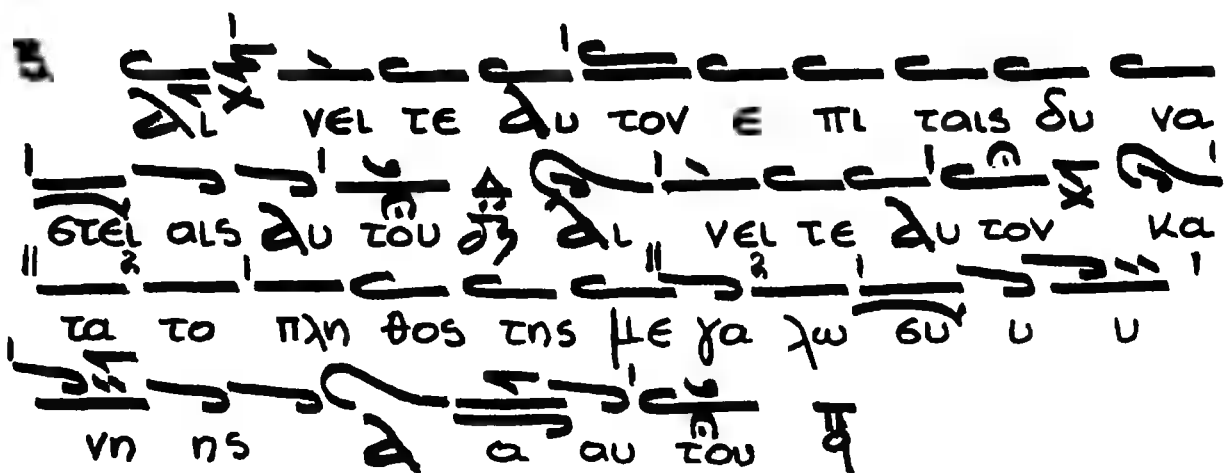 αι νει τε αυ τον ε πι ταις δυ να
στει αις αυ του αι νει τε αυ τον κα
τα το πλη θος της με γα λω συ υ υ
νη ης α α αυ του